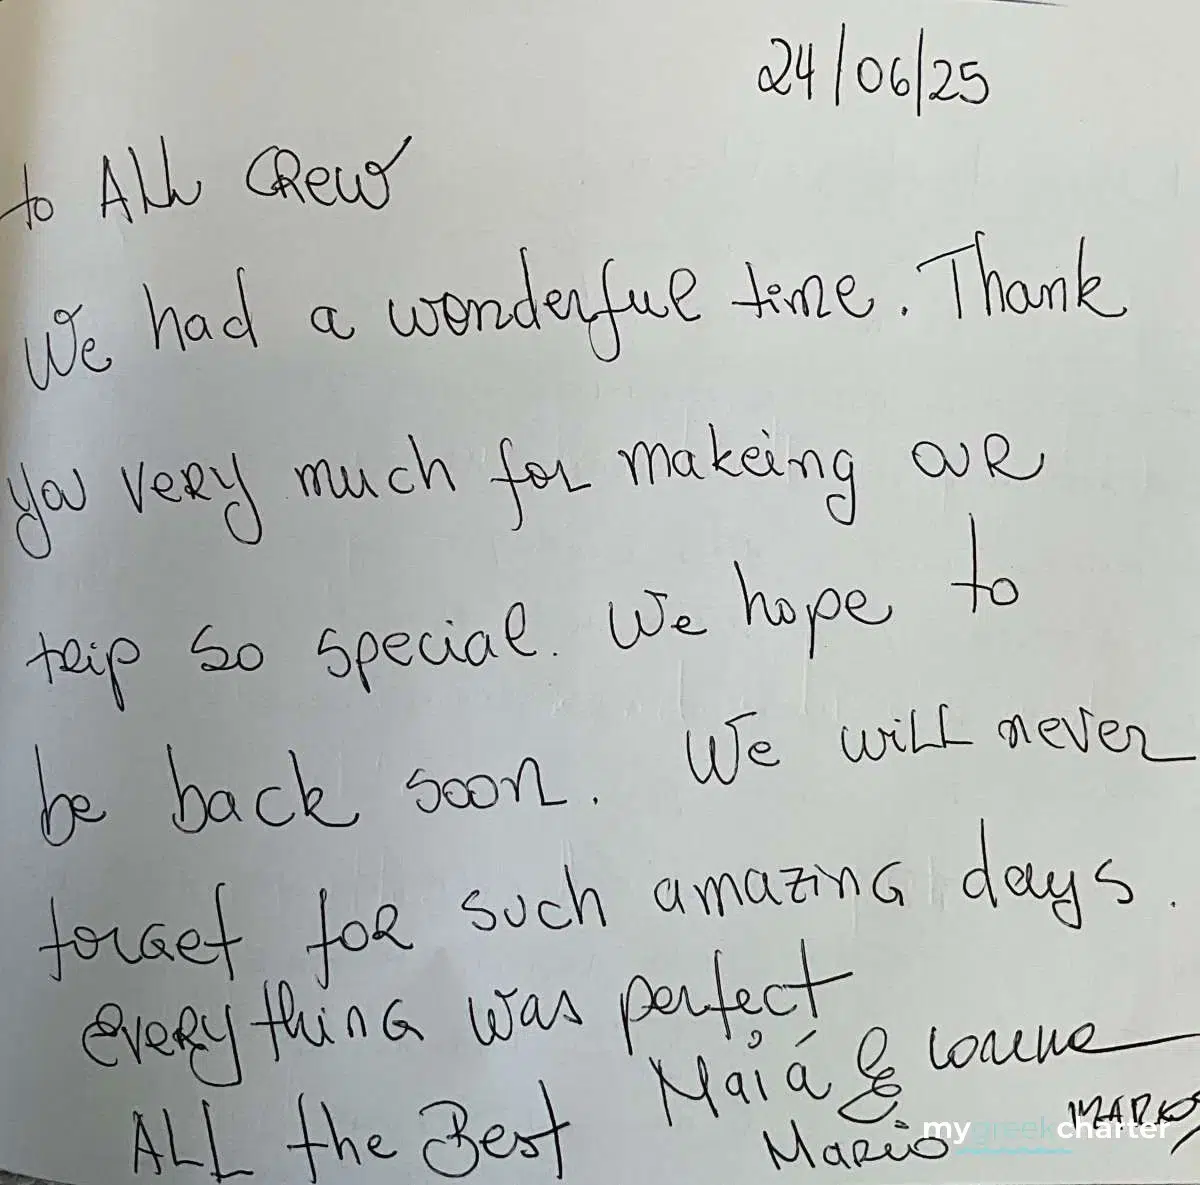 24/06/25
to ALL CRew
We had a wonderful time. Thank
you very much for makeing our
trip so special. We hope to
be back soon. We will never
forget for such amazing days.
everything was perfect
Maiá &
ALL the Best
Mario
MARKOS
mygreekcharter